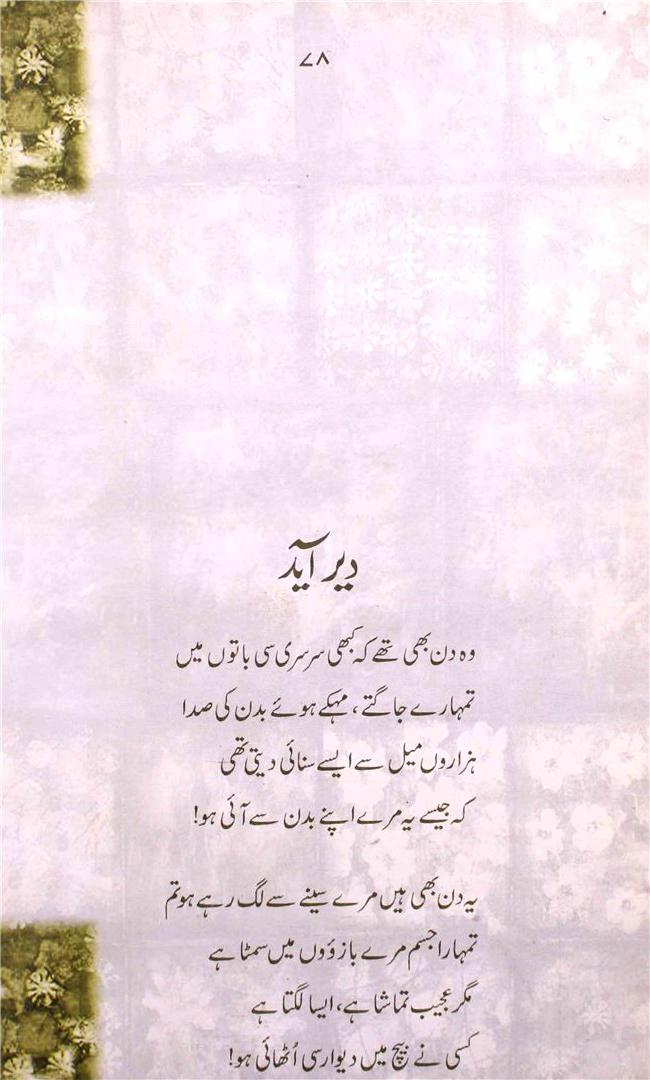 ۷۸
دیر آید
وہ دن بھی تھے کہ کبھی سرسری سی باتوں میں
تمہارے جاگتے، مہکے ہوئے بدن کی صدا
ہزاروں میل سے ایسے سنائی دیتی تھی
کہ جیسے یہ مرے اپنے بدن سے آئی ہو!
یہ دن بھی ہیں مرے سینے سے لگ رہے ہو تم
تمہارا جسم مرے بازوؤں میں سمٹا ہے
مگر عجیب تماشا ہے، ایسا لگتا ہے
کسی نے بیچ میں دیوار سی اُٹھائی ہو!